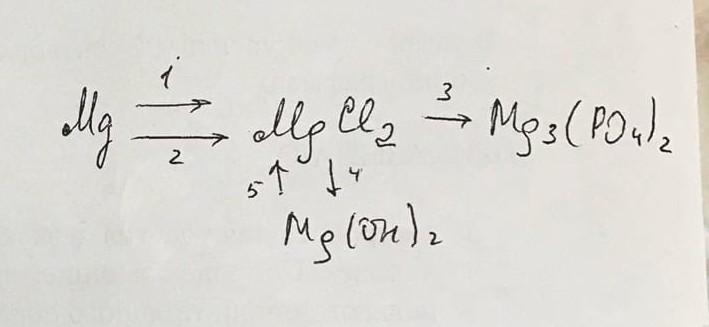 1
Mg → MgCl2 → 3 Mg3(PO4)2
2
5↑ ↓4
Mg(OH)2